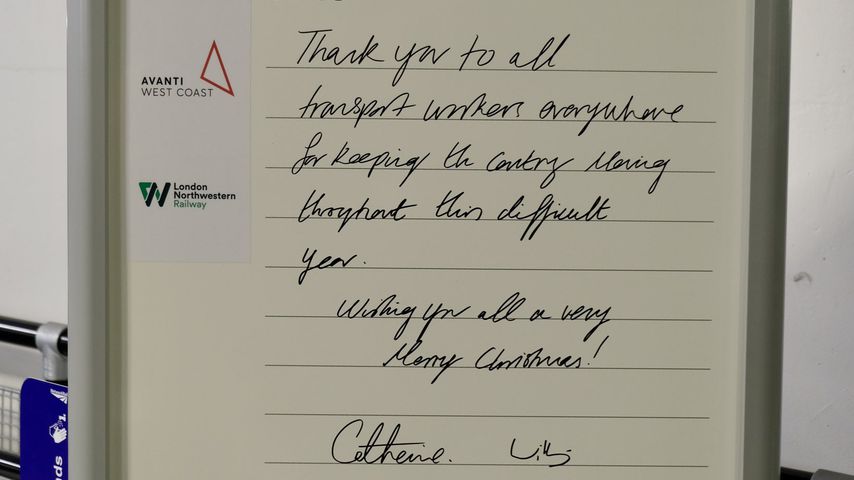 AVANTI
WEST COAST
London
Northwestern
Railway
Thank you to all
transport workers everywhere
for keeping the country moving
throughout this difficult
year.
Wishing you all a very
Merry Christmas!
Catherine. Willi
nds